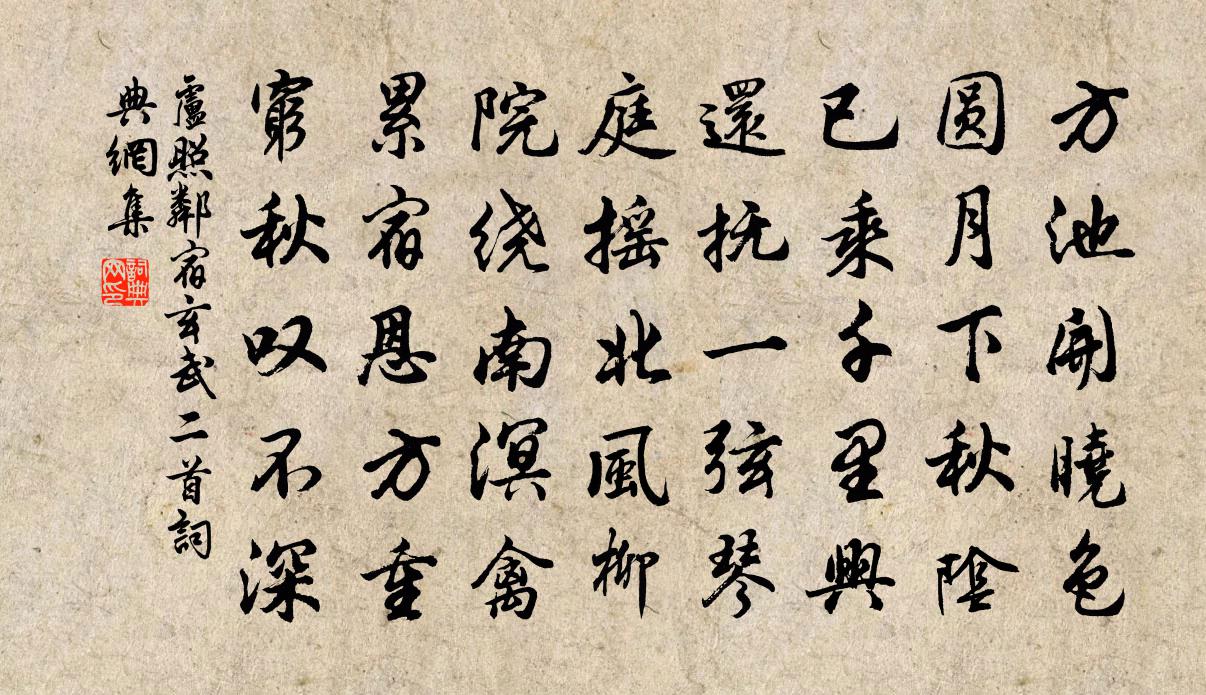 方池開曉色
圓月下秋陰
已乘千里興
還抚一弦琴
庭摇北風柳
院绕南溟禽
累宿恩方重
窮秋叹不深
盧照鄰宿玄武二首詞
典網集
詞典
网印